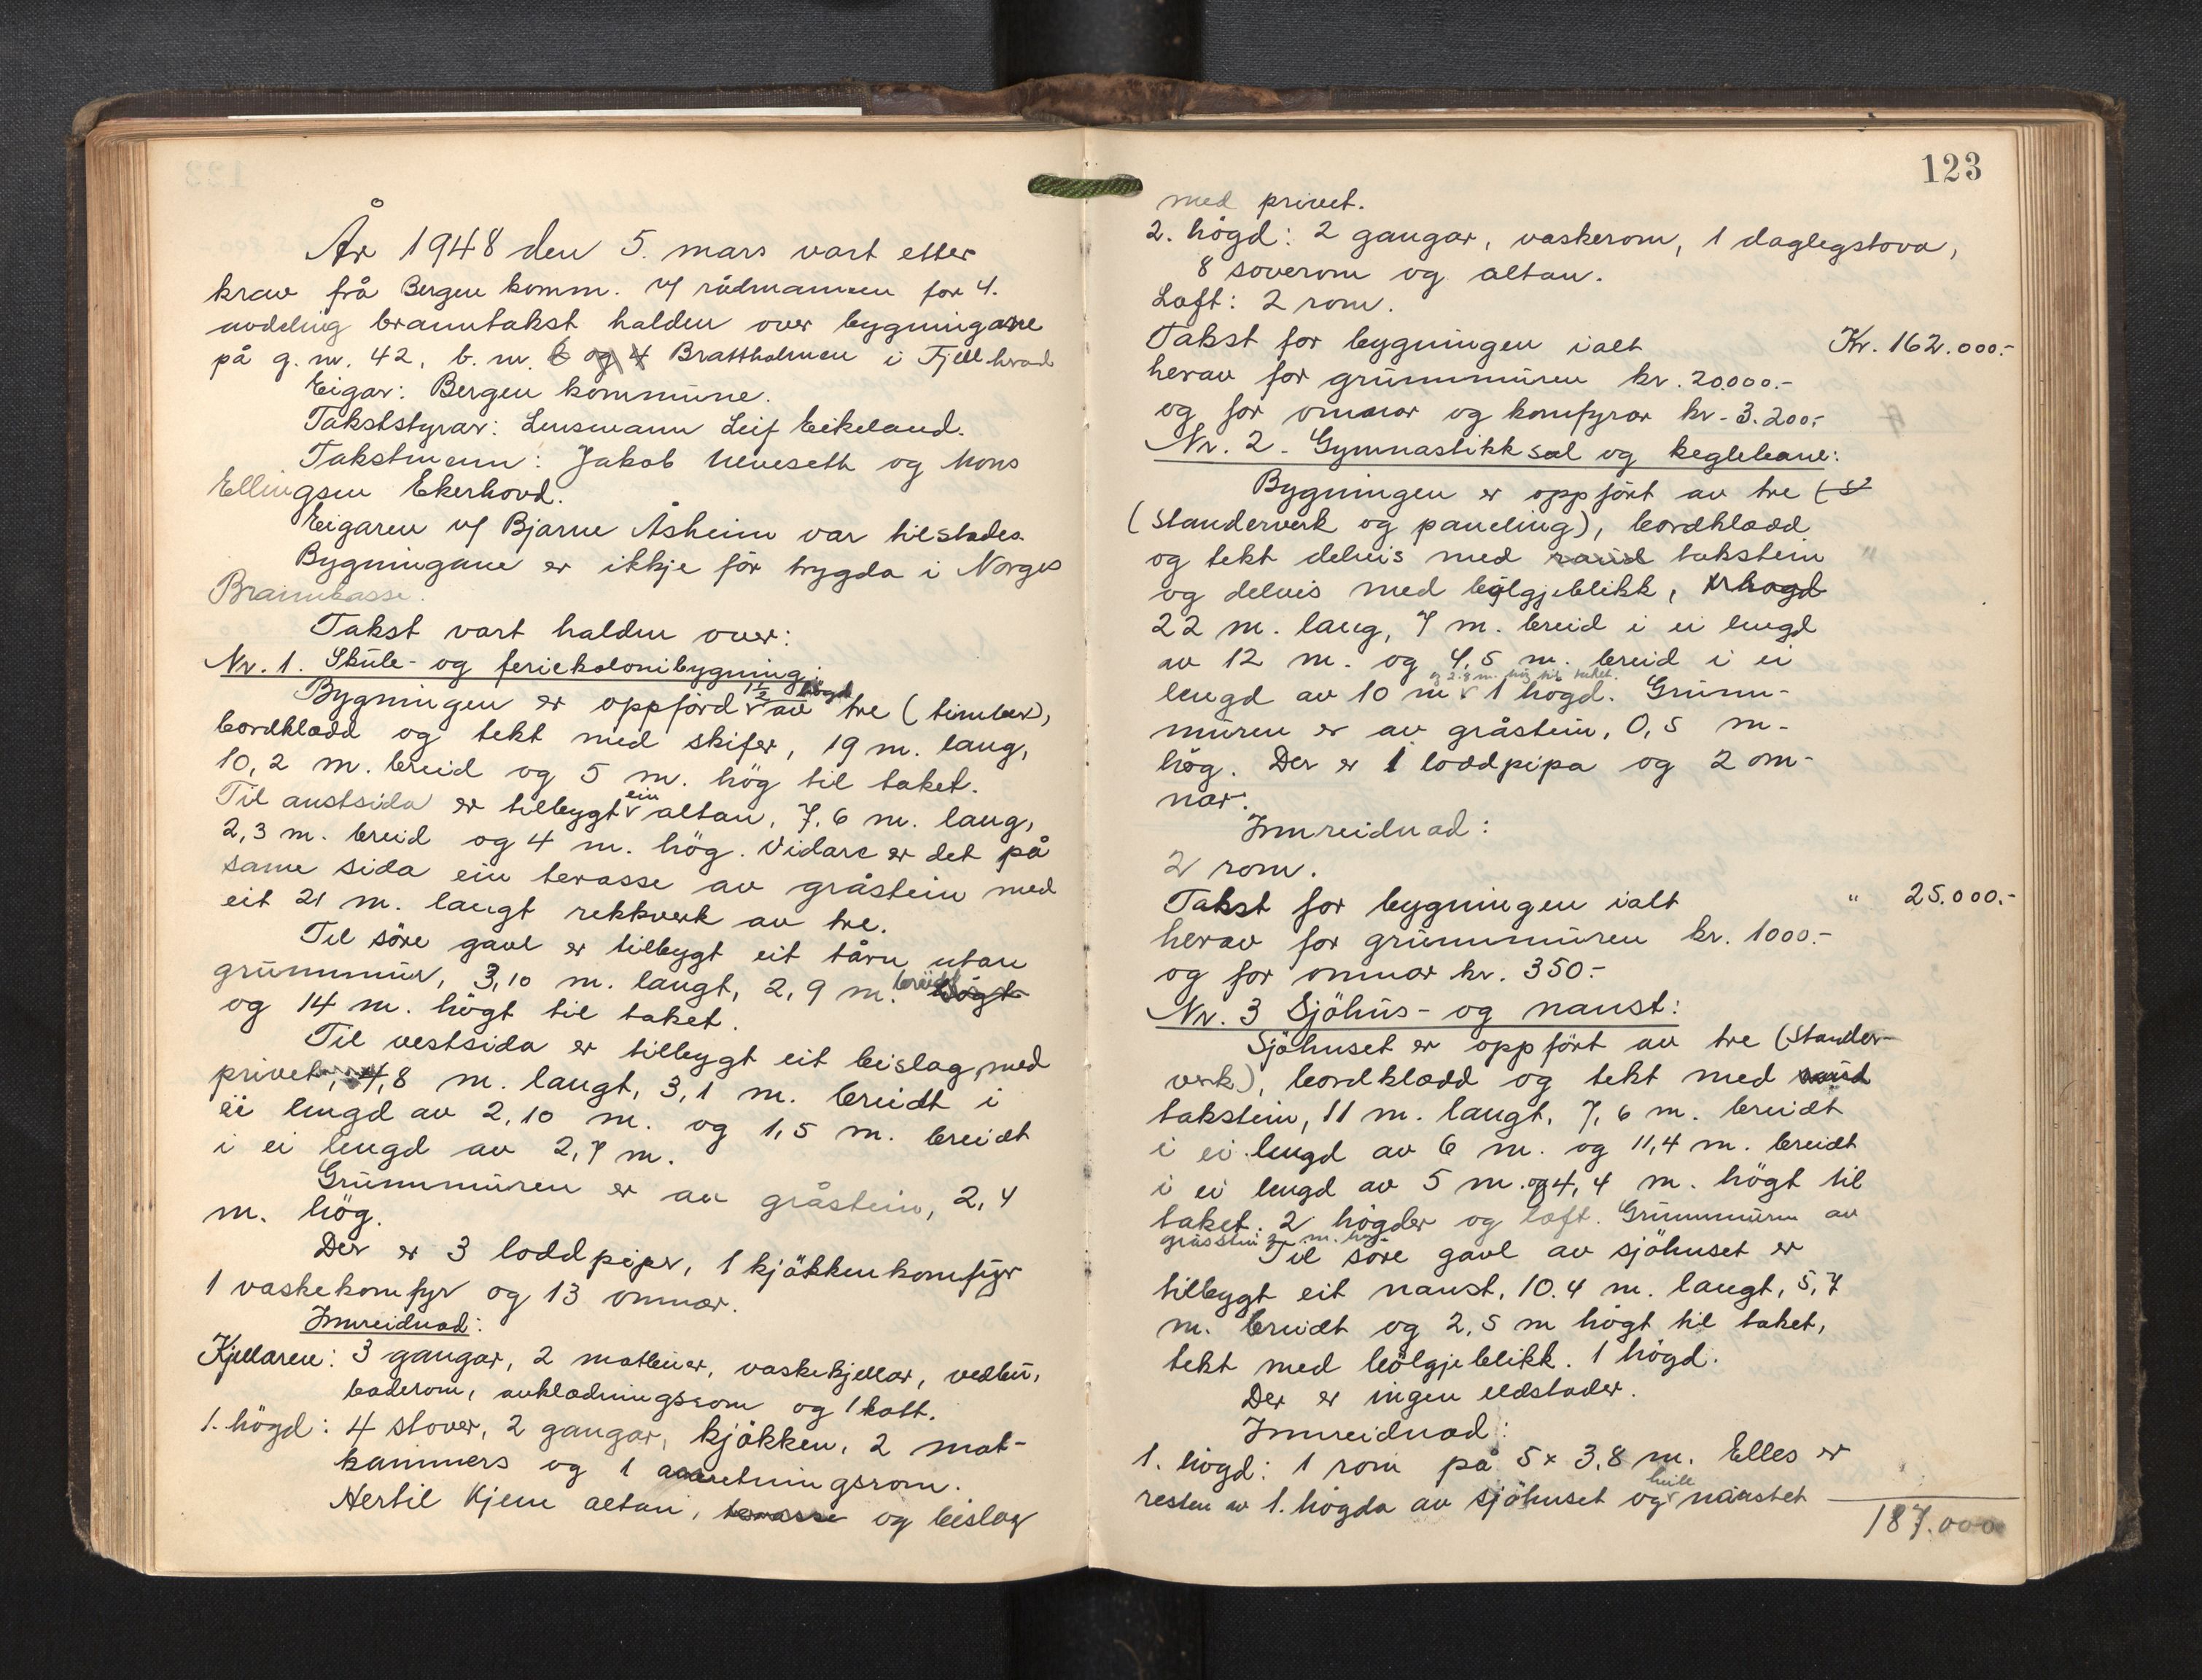 År 1948 den 5. mars vart etter
krav frå Bergen komm. v/ rådmannen for 4.
avdeling branntakst halden over bygningane
på g. nr. 42, b. nr. 6 og 4 Brattholmen i Fjell herad
Eigar: Bergen kommune.
Takststyrar: Lensmann Leif Eikeland.
Takstmenn: Jakob Ulveseth og Mons
Ellingsen Ekerhovd.
Eigaren v/ Bjarne Åsheim var tilstades.
Bygningane er ikkje för trygda i Norges
Brannkasse.
Takst vart halden over:
Nr. 1. Skule- og feriekolonibygning:
Bygningen er oppförd 1½ högd av tre (timber),
bordkledd og tekt med skifer, 19 m. lang,
10,2 m. breid og 5 m. hög til taket.
Til austsida er tilbygt ein altan, 7,6 m. lang,
2,3 m. breid og 4 m. hög. Vidare er det på
same sida ein terasse av gråstein med
eit 21 m. langt rekkverk av tre.
Til söre gavl er tilbygt eit tårn utan
grunnmur, 3,10 m. langt, 2,9 m. breidt högt
og 14 m. högt til taket.
Til vestsida er tilbygt eit beislag med
privet, 4,8 m. langt, 3,1 m. breidt i
ei lengd av 2,10 m. og 1,5 m. breidt
i ei lengd av 2,7 m.
Grunnmuren er av gråstein, 2,4
m. hög.
Der er 3 loddpiper, 1 kjökkenkomfyr
1 vaskekomfyr og 13 omnar.
Innreidnad:
Kjellaren: 3 gangar, 2 matbuer, vaskekjellar, vedbu,
baderom, avkledningsrom og 1 kott.
1. högd: 4 stover, 2 gangar, kjökken, 2 mat-
kammers og 1 anretningsrom.
Hertil kjem altan, terasse og beislag
123
med privet.
2. högd: 2 gangar, vaskerom, 1 daglegstova,
8 soverom og altan.
Loft: 2 rom.
Takst for bygningen ialt Kr. 162.000.-
herav for grunnmuren kr. 20.000.-
og for omnar og komfyrar kr. 3.200.-
Nr. 2. Gymnastikksal og keglebane:
Bygningen er oppfört av tre (S
(standerverk og paneling), bordkledd
og tekt delvis med raud takstein
og delvis med bölgjeblikk, 1 högd
22 m. lang, 7 m. breid i ei lengd
av 12 m. og 4,5 m. breid i ei
og 2.8 m. hög til taket.
lengd av 10 m 1 högd. Grunn-
muren er av gråstein, 0,5 m.
hög. Der er 1 loddpipa og 2 om-
nar.
Innreidnad:
2 rom.
Takst for bygningen ialt " 25.000.-
herav for grunnmuren kr. 1000.-
og for omnar kr. 350.-
Nr. 3 Sjöhus- og naust:
Sjöhuset er oppfört av tre (stander-
verk), bordkledd og tekt med raud
takstein, 11 m. langt, 7,6 m. breidt
i ei lengd av 6 m. og 11,4 m. breidt
i ei lengd av 5 m. og 4,4 m. högt til
taket. 2 högder og loft. Grunnmuren av
gråstein 2 m. hög.
Til söre gavl av sjöhuset er
tilbygt eit naust, 10.4 m. langt, 5,7
m. breidt og 2,5 m högt til taket,
tekt med bölgjeblikk. 1 högd.
Der er ingen eldstader.
Innreidnad:
1. högd: 1 rom på 5 x 3,8 m. Elles er
resten av 1. högda av sjöhuset og heile naustet
187.000